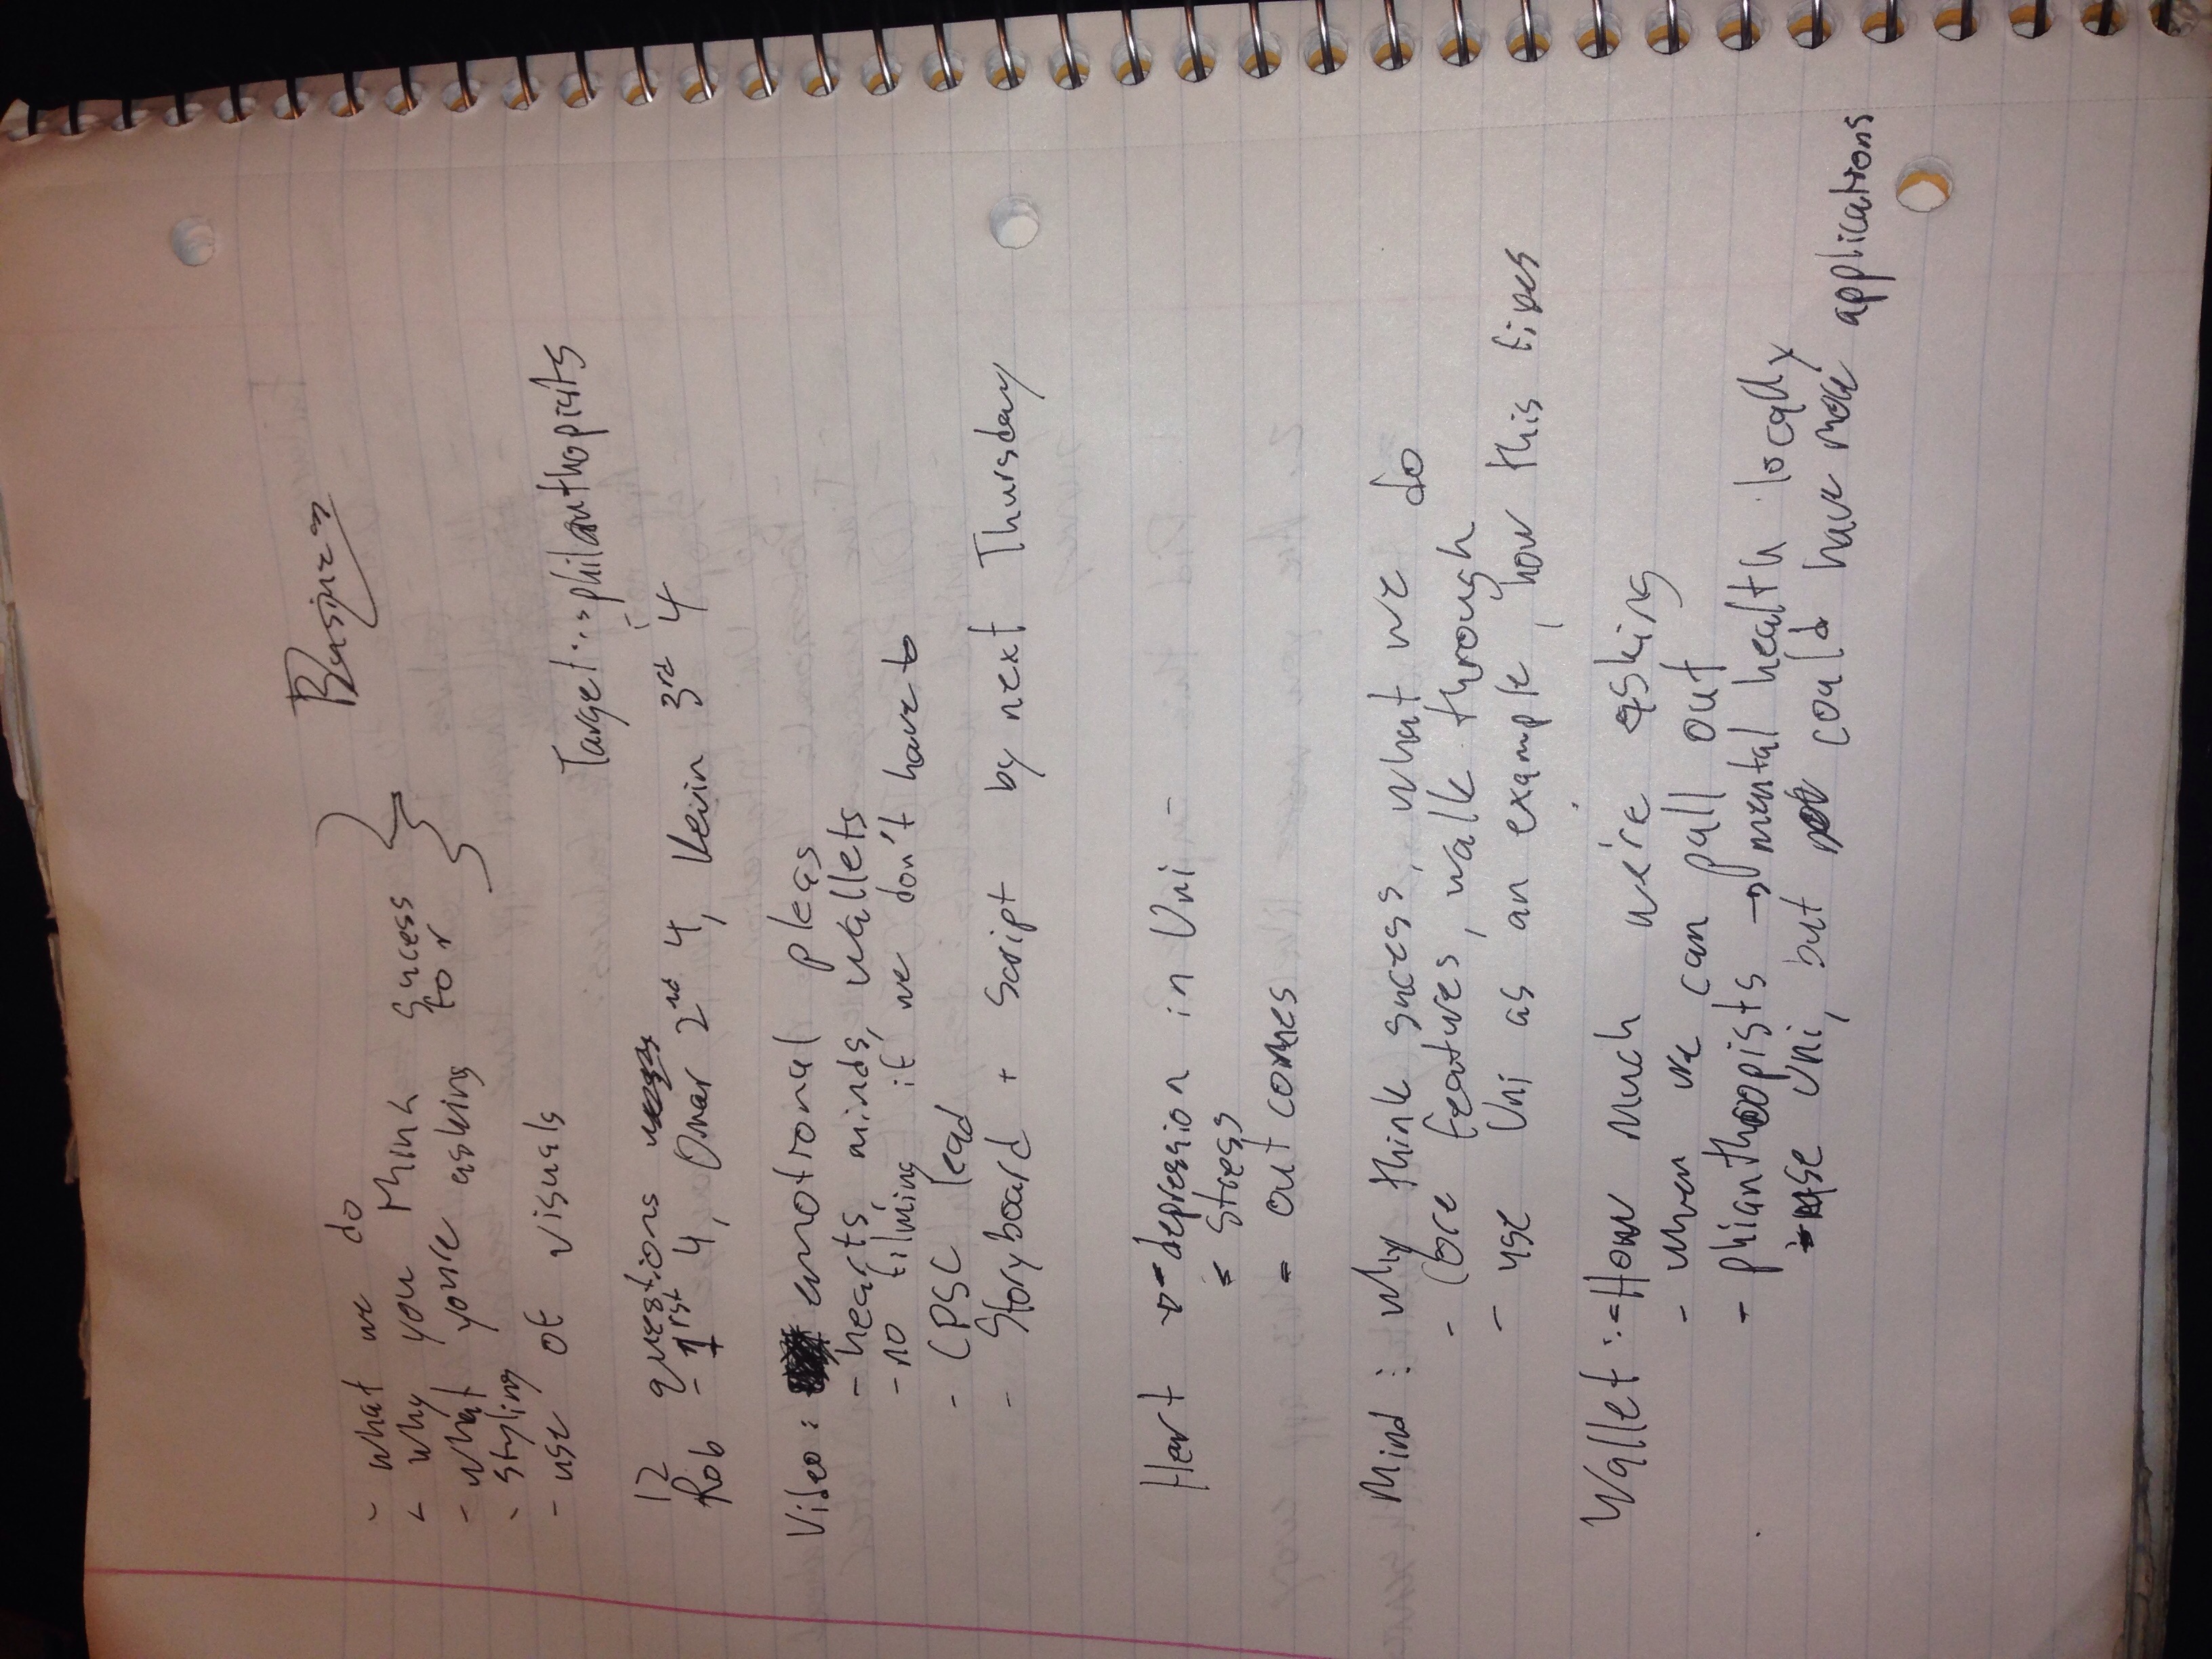 Business
- what we do
- why you think sucess
- what you're asking for
- styling
- use of visuals
Target: philanthopists
12 questions
Rob - 1rst 4, Omar 2nd 4, Kevin 3rd 4
Video: emotional pleas
- hearts, minds, wallets
- no filming if we don't have to
- CPSC lead
- Storyboard + Script by next Thursday
Hert → - depression in Uni -
- stress
- outcomes
Mind: why think sucess, what we do
- Core features, walk through
- use Uni as an example, how this fixes
Wallet: - How much we're asking
- when we can pull out
- phianthropists → mental health locally
- use Uni, but could have more applications